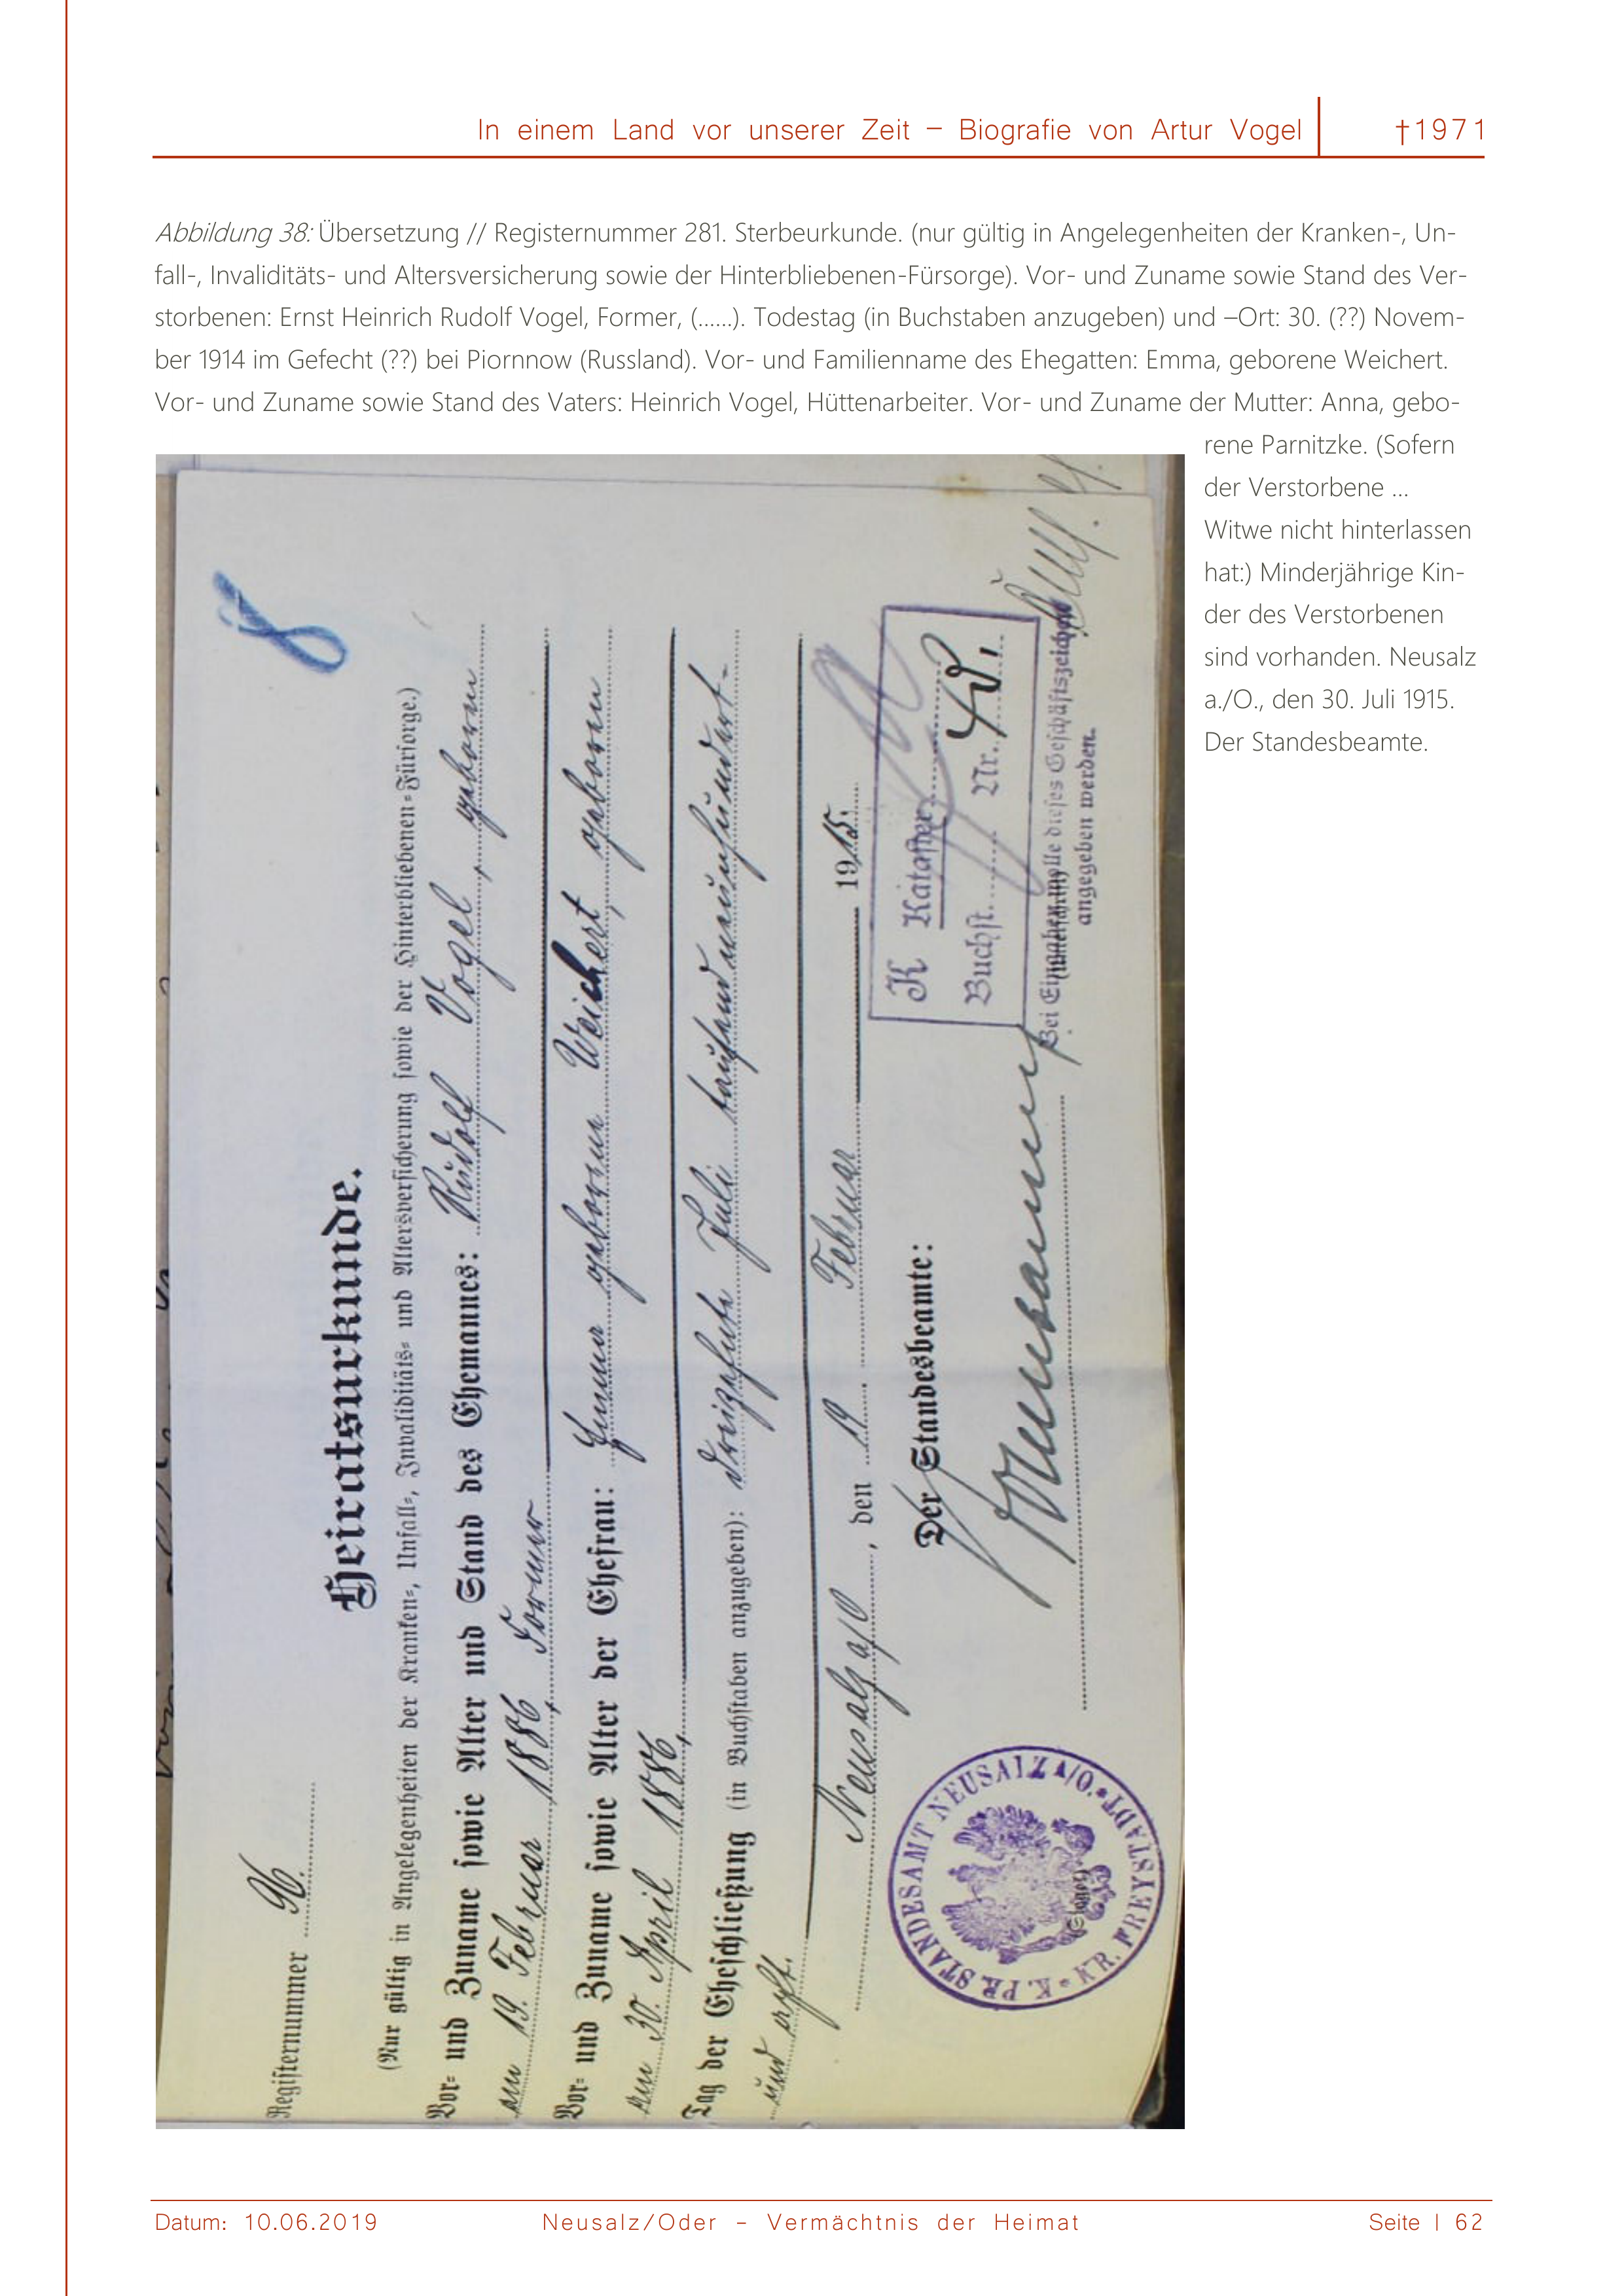 In einem Land vor unserer Zeit – Biografie von Artur Vogel
†1971
Abbildung 38: Übersetzung // Registernummer 281. Sterbeurkunde. (nur gültig in Angelegenheiten der Kranken-, Un-
fall-, Invaliditäts- und Altersversicherung sowie der Hinterbliebenen-Fürsorge). Vor- und Zuname sowie Stand des Ver-
storbenen: Ernst Heinrich Rudolf Vogel, Former, (……). Todestag (in Buchstaben anzugeben) und –Ort: 30. (??) Novem-
ber 1914 im Gefecht (??) bei Piornnow (Russland). Vor- und Familienname des Ehegatten: Emma, geborene Weichert.
Vor- und Zuname sowie Stand des Vaters: Heinrich Vogel, Hüttenarbeiter. Vor- und Zuname der Mutter: Anna, gebo-
rene Parnitzke. (Sofern
der Verstorbene …
Witwe nicht hinterlassen
hat:) Minderjährige Kin-
der des Verstorbenen
sind vorhanden. Neusalz
a./O., den 30. Juli 1915.
Der Standesbeamte.
8
Registernummer 96.
Heiratsurkunde.
(Nur gültig in Angelegenheiten der Kranken-, Unfall-, Invaliditäts- und Altersversicherung sowie der Hinterbliebenen-Fürsorge.)
Vor- und Zuname sowie Alter und Stand des Ehemannes: Rudolf Vogel, geboren
am 19. Februar 1886, Former
Vor- und Zuname sowie Alter der Ehefrau: Emma geborene Weichert, geboren
am 30. April 1886,
Tag der Eheschließung (in Buchstaben anzugeben): dreizehnte Juli tausendneunhundert-
und elf.
Neusalz a/O, den 19. Februar 1915.
Der Standesbeamte:
K Kataster
Buchst. Nr.
Bei Eingaben wolle dieses Geschäftszeichen
angegeben werden.
K. PR. STANDESAMT NEUSALZ A/O. * KR. FREYSTADT *
Datum: 10.06.2019
Neusalz/Oder – Vermächtnis der Heimat
Seite | 62